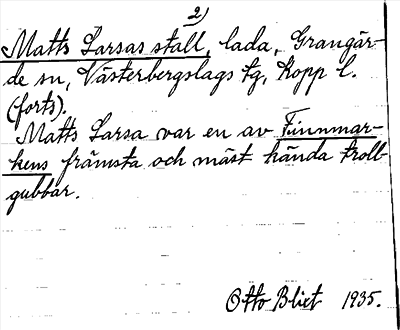 2)
Matts Larsas stall, lada, Grangär-
de sn, Västerbergslags tg, Kopp l.
(forts).
Matts Larsa var en av Finnmar-
kens främsta och mäst kända troll-
gubbar.
Otto Blixt 1935.